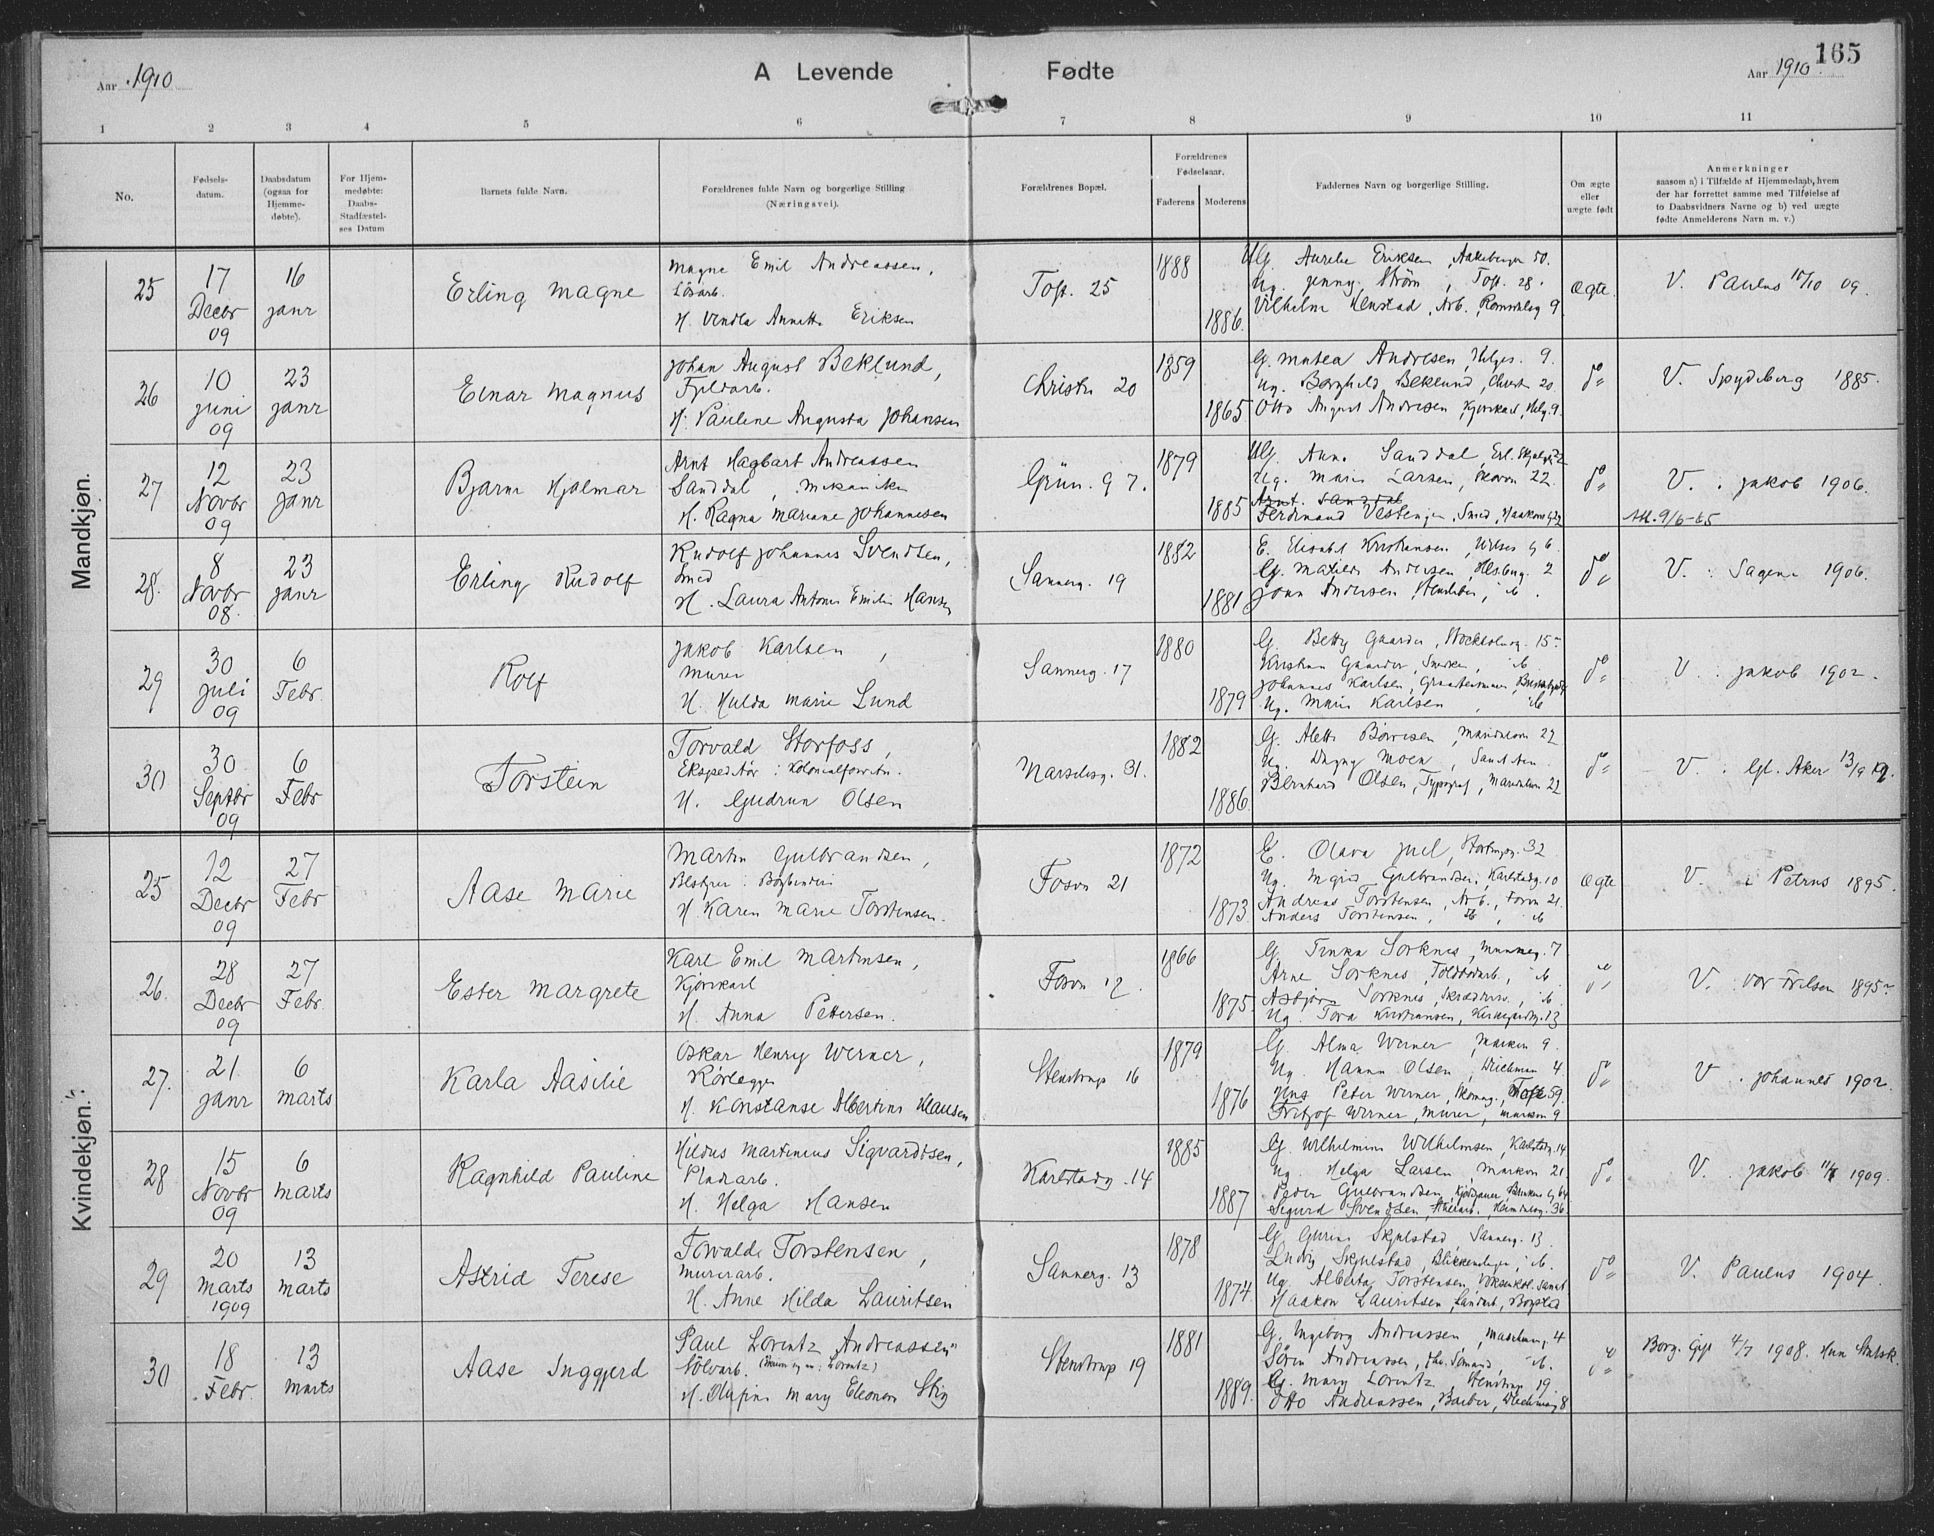 165
Aar 1910
A Levende Fødte
Aar 1910
1 2 3 4 5 6 7 8 9 10 11
No.
Fødsels-
datum.
Daabsdatum
(ogsaa for
Hjemme-
døbte).
For Hjem-
medøbte:
Daabs-
Stadfæstel-
ses Datum
Barnets fulde Navn.
Forældrenes fulde Navn og borgerlige Stilling
(Næringsvei).
Forældrenes Bopæl.
Forældrenes
Fødselsaar.
Faderens Moderens
Faddernes Navn og borgerlige Stilling.
Om ægte
eller
uægte født
Anmerkninger
saasom a) i Tilfælde af Hjemmedaab, hvem
der har forrettet samme med Tilføielse af
to Daabsvidners Navne og b) ved uægte
fødte Anmelderens Navn m. v.)
Mandkjøn.
25
17 Decbr 09
16 Janr
Erling Magne
Magne Emil Andreassen,
Løsarb.
H. Vendla Annette Eriksen
Toft. 25
1888
1886
Ug. Aurelie Eriksen, Aakebergv 50.
Ug. Jenny Strøm, Toft. 28.
Vilhelm Henstad, Arb., Romsdalsg 9
Ægte
V. Paulus 10/10 09.
26
10 Juni 09
23 Janr
Einar Magnus
Johan August Beklund,
Fjeldarb.
H. Pauline Augusta Johansen
Christu 20
1859
1865
G. Matea Andresen, Helges. 9.
Ug. Borghild Beklund, Christ 20
Otto August Andresen, Kjørekarl, Helg. 9
do
V. Spydeberg 1885.
27
12 Novbr 09
23 Janr
Bjarne Hjalmar
Arnt Hagbart Andreassen
Sanddal, Mekaniker
H. Ragna Mariane Johannesen
Grün. g 7.
1879
1885
Ug. Anna Sanddal
Ug. Marie Larsen, 22.
Arnt Sanddal
Ferdinand Smed, Haakons
do
V. Jakob 1906.
Att. 9/6-65
28.
8 Novbr 08.
23 Janr
Erling Rudolf
Rudolf Johannes Svendsen,
Smed
H. Laura Antonie Emilie Hansen
Sannerg. 19
1882
1881
E. Elisabet Kristiansen, g 6.
G. Matilde Andersen, 2
John Andersen,
do
V. Sagene 1906.
29
30 Juli 09
6 Febr.
Rolf
Jakob Karlsen,
Murer
H. Hulda Marie Lund
Sannerg. 17
1880
1879
G. Betty Gaarder, Stockholmg. 15
Kristian Gaarder, Snekker, ib.
Johannes Karlsen,
Ug. Marie Karlsen, ib
do
V. Jakob 1902.
30
30 Septbr 09
6 Febr
Torstein
Torvald Storfoss,
Ekspeditør i Kolonialforretn.
H. Gudrun Olsen
Marselisg. 31.
1882
1886
G. Alette Børresen, 22
Ug. Dagny Moen,
Bernhard Olsen, Typograf, 22
do
V. Gl. Aker 13/9
Kvindekjøn.
25
12 Decbr 09
27 Febr
Aase Marie
Martin Gulbrandsen,
Bestyrer i Bogbinderi
H. Karen Marie Torstensen.
Fosvn 21
1872
1873
E. Olava Juel, 32
Ug. Gulbrandsen, Karlstadg. 10
Andreas Torstensen, Arb., Fosvn 21.
Anders Torstensen, do, ib
Ægte
V. i Petrus 1895.
26.
28 Decbr 09
27 Febr.
Ester Margrete
Karl Emil Martinsen,
Kjørekarl
H. Anna Pettersen.
Fosvn 12.
1866
1875.
G. Tinka Sorknes, 7
Arne Sorknes, Toldbodarb., ib.
Asbjørn Sorknes, ib.
Ug. Tora Kristiansen, Kirkegaardsg. 13
do
V. Vor Frelsers 1895
27.
21. Janr
6 Marts
Karla Aasilie
Oskar Henry Werner,
Rørlegger
H. Konstanse Albertine Klausen
Stenstrup 16
1879
1876
G. Alma Werner, Markvn 9.
Ug. Hanna Olsen, Deichman 4
Hans Peter Werner, Skomag., Tofte 59.
Fritjof Werner, Murer, Markvn 9
do
V. Johannes 1902.
28
15 Novbr 09
6 Marts
Ragnhild Pauline
Hildus Martinius Sigvardtsen,
Pladearb.
H. Helga Hansen
Karlstadg. 14
1885
1887
G. Wilhelmine Wilhelmsen, Karlstadg. 14
Ug. Helga Larsen, Markvn 21
Peder Gulbrandsen,
Sigurd Svendsen, Heimdalsg. 36
do
V. Jakob 1909.
29
20 Marts 1909
13 Marts
Astrid Terese
Torvald Torstensen,
Murerarb.
H. Anne Hilda Lauritsen
Sannerg. 13
1878
1874
G. Gurine Skjulstad Sannerg. 13.
Ludvig Skjulstad, Blikkenslager, ib.
Ug. Alberta Torstensen, Voksenkol. Sanat.
Haakon Lauritsen, Landarb.,
do
V. Paulus 1904.
30
18 Febr.
13 Marts
Aase Inggjerd
Paul Lorentz Andreassen
Sølvarb.
H. Olufine Mary Eleonora Stig
Stenstrup 19
1881
1889.
G. Ingeborg Andreassen, 4
Søren Andreassen, ib.
G. Mary Lorentz, Stenstrup 19.
Otto Andreassen, Barber, Deichmansg 8
do
Borg. Gift 4/7 1908.